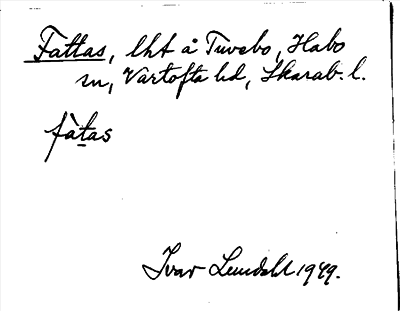 Fattas, lht å Tuvebo, Habo
sn, Vartofta hd, Skarab. l.
fàtas
Ivar Lundahl 1949.